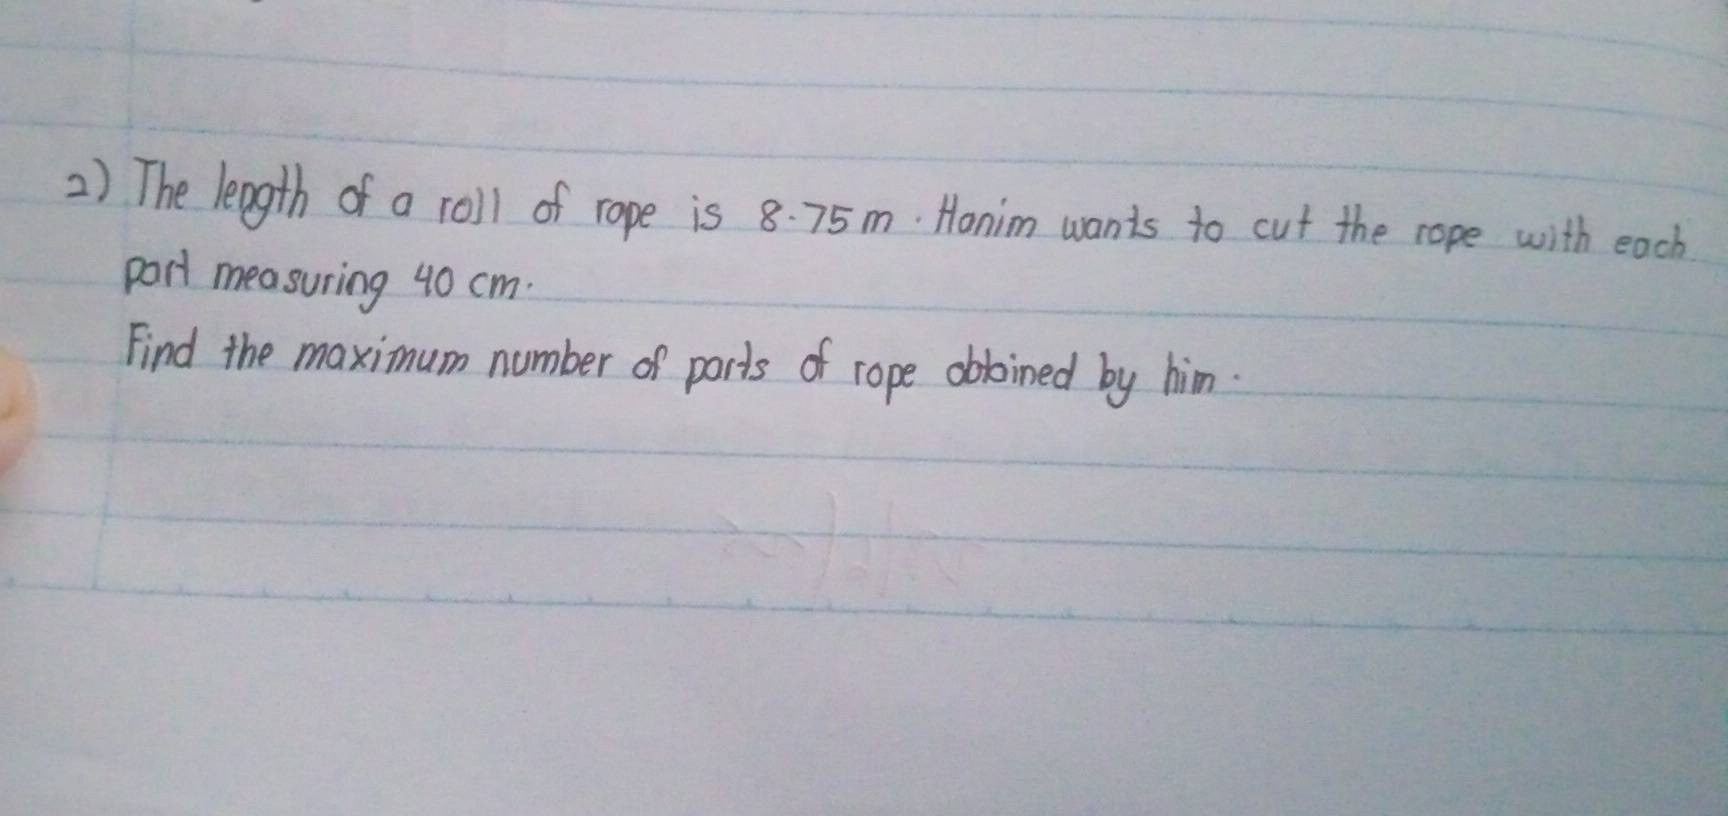 2) The length of a roll of rope is 8.75 m. Hanim wants to cut the rope with each
part measuring 40 cm.
Find the maximum number of parts of rope obtained by him.